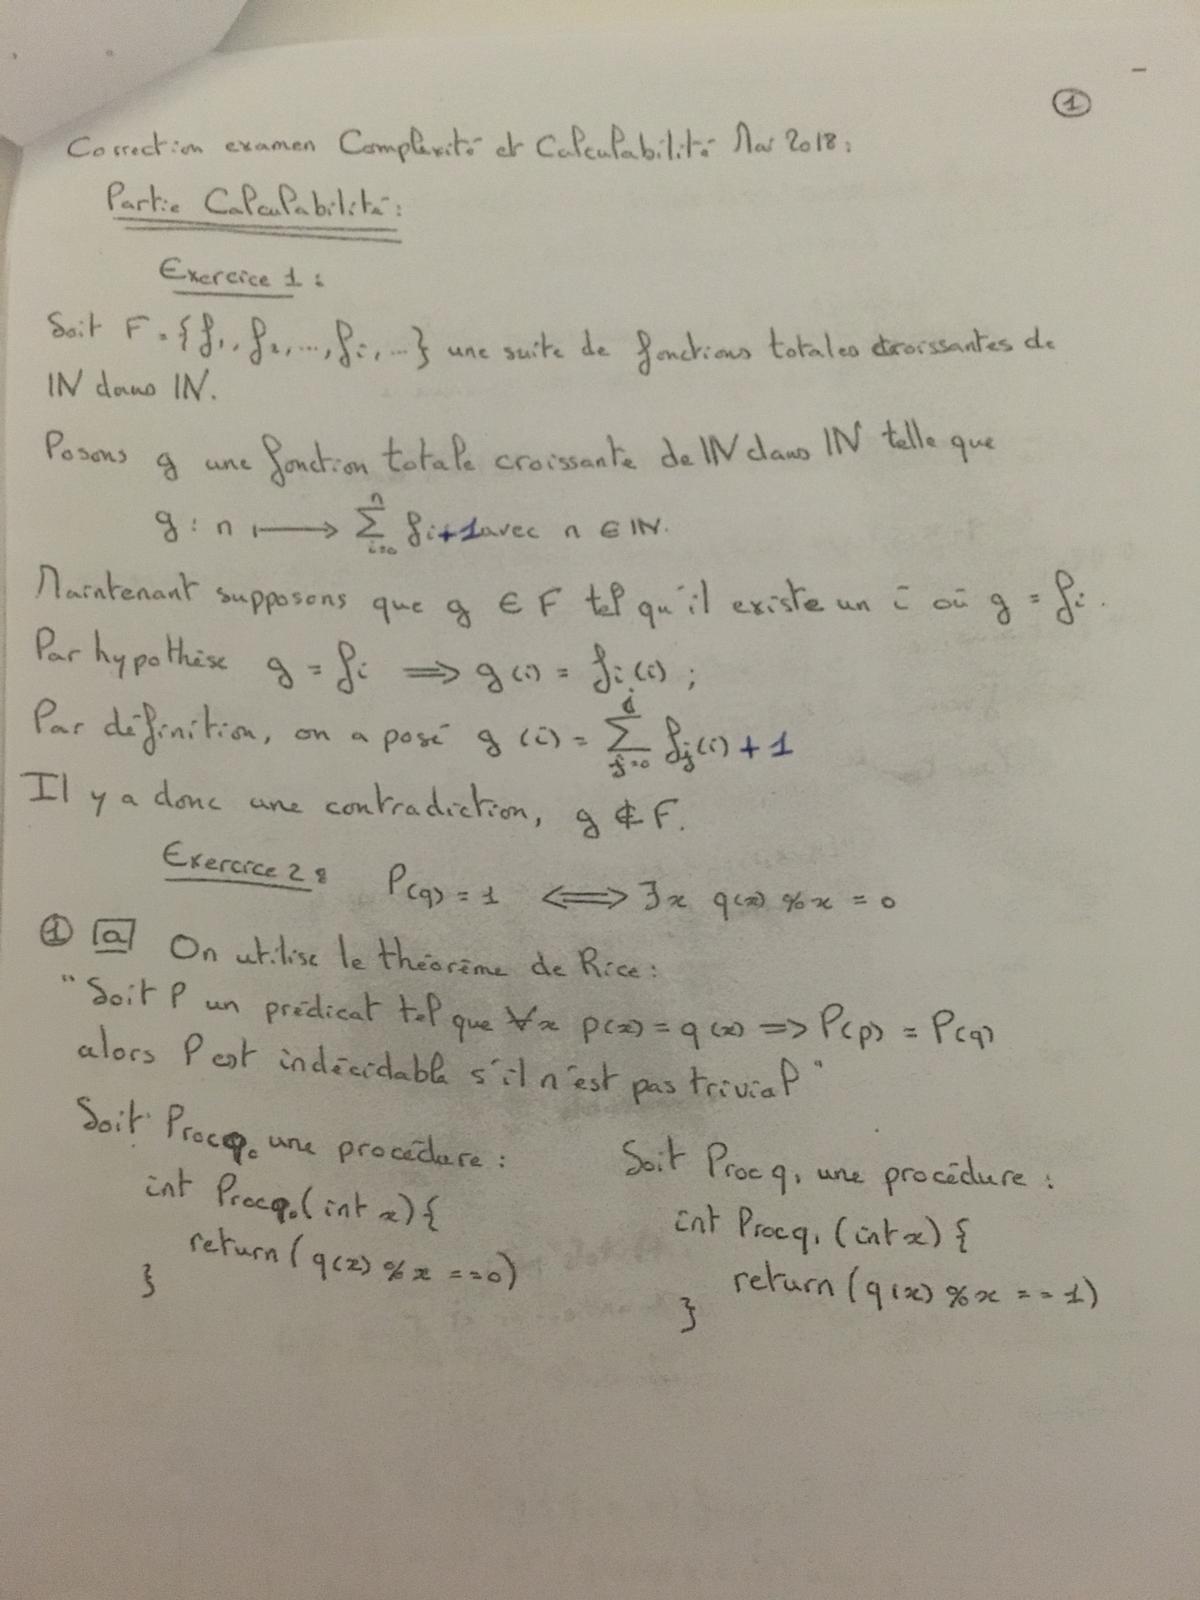 ①
Correction examen Complexité et Calculabilité Mai 2018:
Partie Calculabilité:
Exercice 1:
Soit F = {f₁, f₂, ..., fᵢ, ...} une suite de fonctions totales croissantes de
IN dans IN.
Posons g une fonction totale croissante de IN dans IN telle que
g : n ⟼ ∑ⁿᵢ₌₀ fᵢ+1 avec n ∈ IN.
Maintenant supposons que g ∈ F tel qu'il existe un i où g = fᵢ.
Par hypothèse g = fᵢ ⟹ g(i) = fᵢ(i) ;
Par définition, on a posé g(i) = ∑ⁱⱼ₌₀ fⱼ(i) + 1
Il y a donc une contradiction, g ∉ F.
Exercice 2: P(q) = 1 ⟺ ∃x q(x) % x = 0
① [a] On utilise le théorème de Rice:
"Soit P un prédicat tel que ∀x p(x) = q(x) ⟹ P(p) = P(q)
alors P est indécidable s'il n'est pas trivial"
Soit Procq₀ une procédure :
int Procq₀(int x){
return(q(x) % x ==0)
}
Soit Procq₁ une procédure :
int Procq₁(int x){
return(q(x) % x == 1)
}